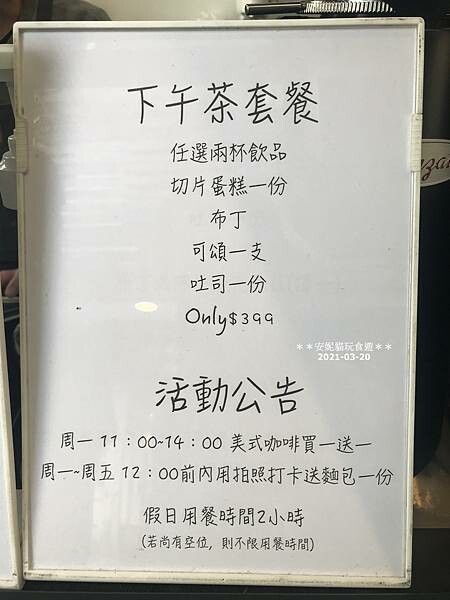 下午茶套餐
任選兩杯飲品
切片蛋糕一份
布丁
可頌一支
吐司一份
Only$399
＊＊安妮貓玩食遊＊＊
2021-03-20
活動公告
周一 11：00~14：00 美式咖啡買一送一
周一~周五 12：00前內用拍照打卡送麵包一份
假日用餐時間2小時
(若尚有空位, 則不限用餐時間)